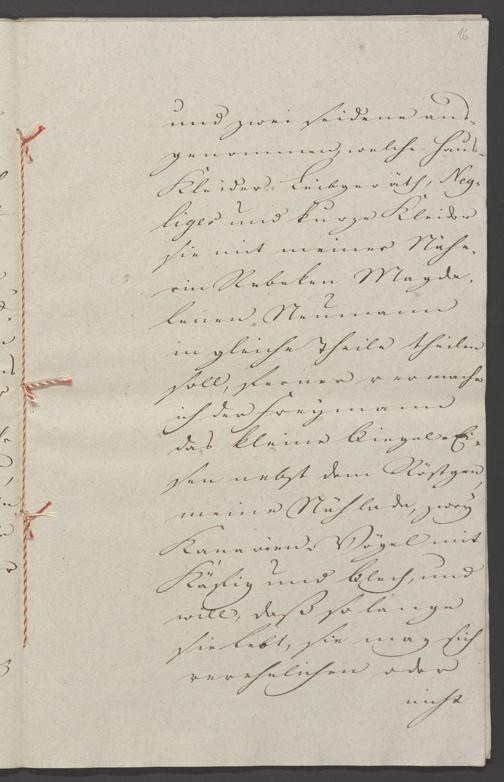 16
und zwei seidene aus-
genommen, welche Haus-
Kleider, Leibgeräth, Neg-
liges und kurze Kleider
sie mit meiner Nähe-
rin Rebeken Magda-
lenen Neumann
in gleiche Theile theilen
soll, ferner vermache
ich der Freymann
das kleine Biegel-Ei-
sen nebst dem Röstgen,
meine Nählade, zwey
Kanarien-Vögel mit
Käfig und Blech, und
will, daß so lange
sie lebt, sie mag sich
verehelichen oder
nicht